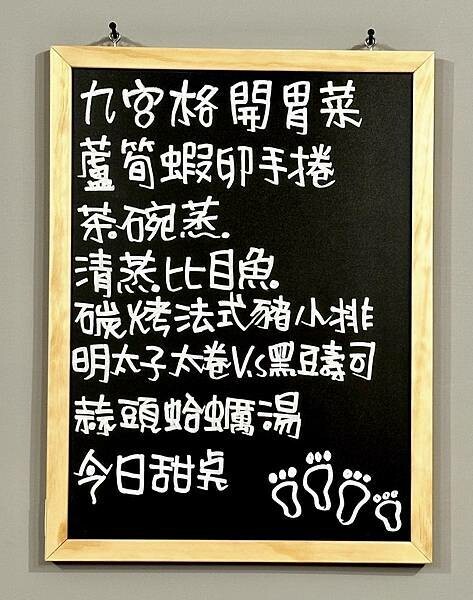 九宮格開胃菜
蘆筍蝦卵手捲
茶碗蒸
清蒸比目魚
碳烤法式豬小排
明太子太卷V.s黑豆壽司
蒜頭蛤蠣湯
今日甜点